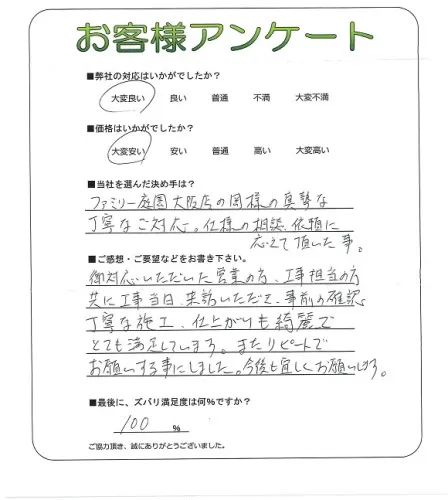 お客様アンケート
■弊社の対応はいかがでしたか？
大変良い　良い　普通　不満　大変不満
■価格はいかがでしたか？
大変安い　安い　普通　高い　大変高い
■当社を選んだ決め手は？
ファミリー庭園大阪店の岡様の真摯な
丁寧なご対応。仕様の相談、依頼に
応えて頂いた事。
■ご感想・ご要望などをお書き下さい。
御対応いただいた営業の方、工事担当の方
共に工事当日、来訪いただきて、事前の確認、
丁寧な施工、仕上がりも綺麗で
とても満足しています。またリピートで
お願いする事にしました。今後も宜しくお願いします。
■最後に、ズバリ満足度は何％ですか？
100 %
ご協力頂き、誠にありがとうございました。